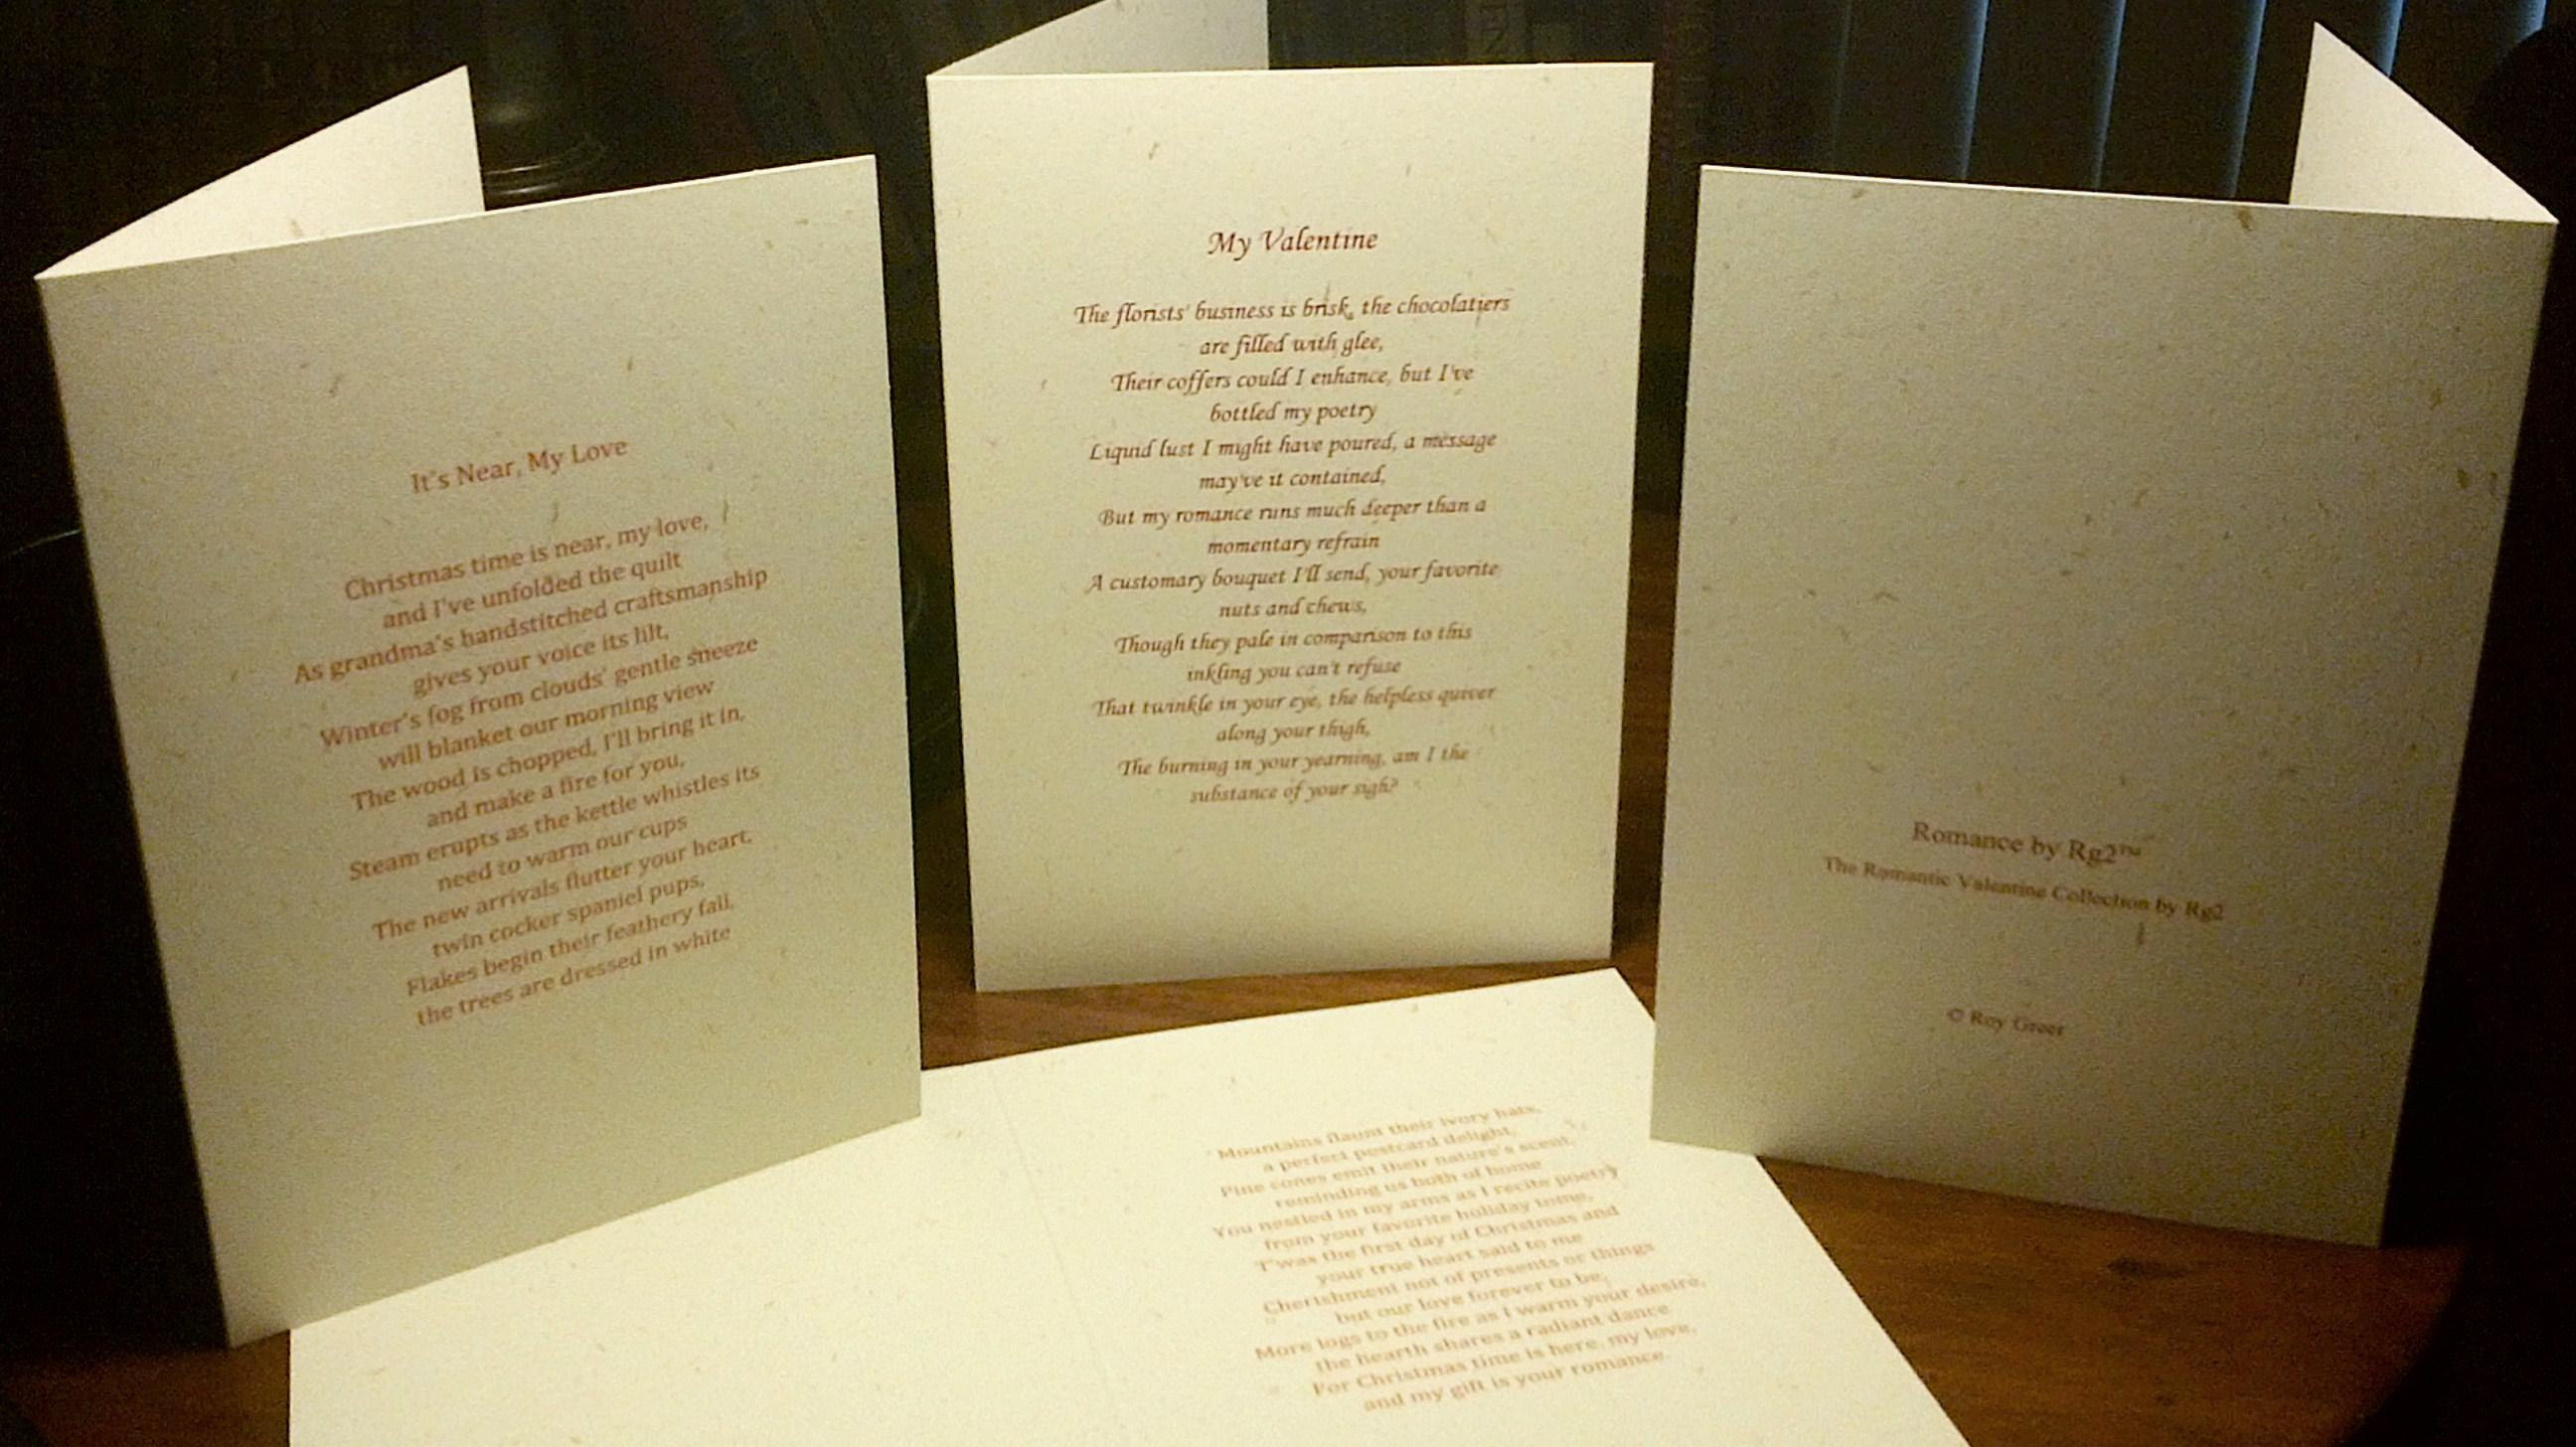 It's Near, My Love
Christmas time is near, my love,
and I've unfolded the quilt
As grandma's handstitched craftsmanship
gives your voice its lilt,
Winter's fog from clouds' gentle sneeze
will blanket our morning view
The wood is chopped, I'll bring it in,
and make a fire for you,
Steam erupts as the kettle whistles its
need to warm our cups
The new arrivals flutter your heart,
twin cocker spaniel pups,
Flakes begin their feathery fall,
the trees are dressed in white
My Valentine
The florists' business is brisk, the chocolatiers
are filled with glee,
Their coffers could I enhance, but I've
bottled my poetry
Liquid lust I might have poured, a message
may've it contained,
But my romance runs much deeper than a
momentary refrain
A customary bouquet I'll send, your favorite
nuts and chews,
Though they pale in comparison to this
inkling you can't refuse
That twinkle in your eye, the helpless quiver
along your thigh,
The burning in your yearning, am I the
substance of your sigh?
Romance by Rg2™
The Romantic Valentine Collection by Rg2
© Roy Greer
Mountains flaunt their ivory hats,
a perfect postcard delight,
Pine cones emit their nature's scent,
reminding us both of home
You nestled in my arms as I recite poetry
from your favorite holiday tome,
T'was the first day of Christmas and
your true heart said to me
Cherishment not of presents or things
but our love forever to be,
More logs to the fire as I warm your desire,
the hearth shares a radiant dance
For Christmas time is here, my love,
and my gift is your romance.